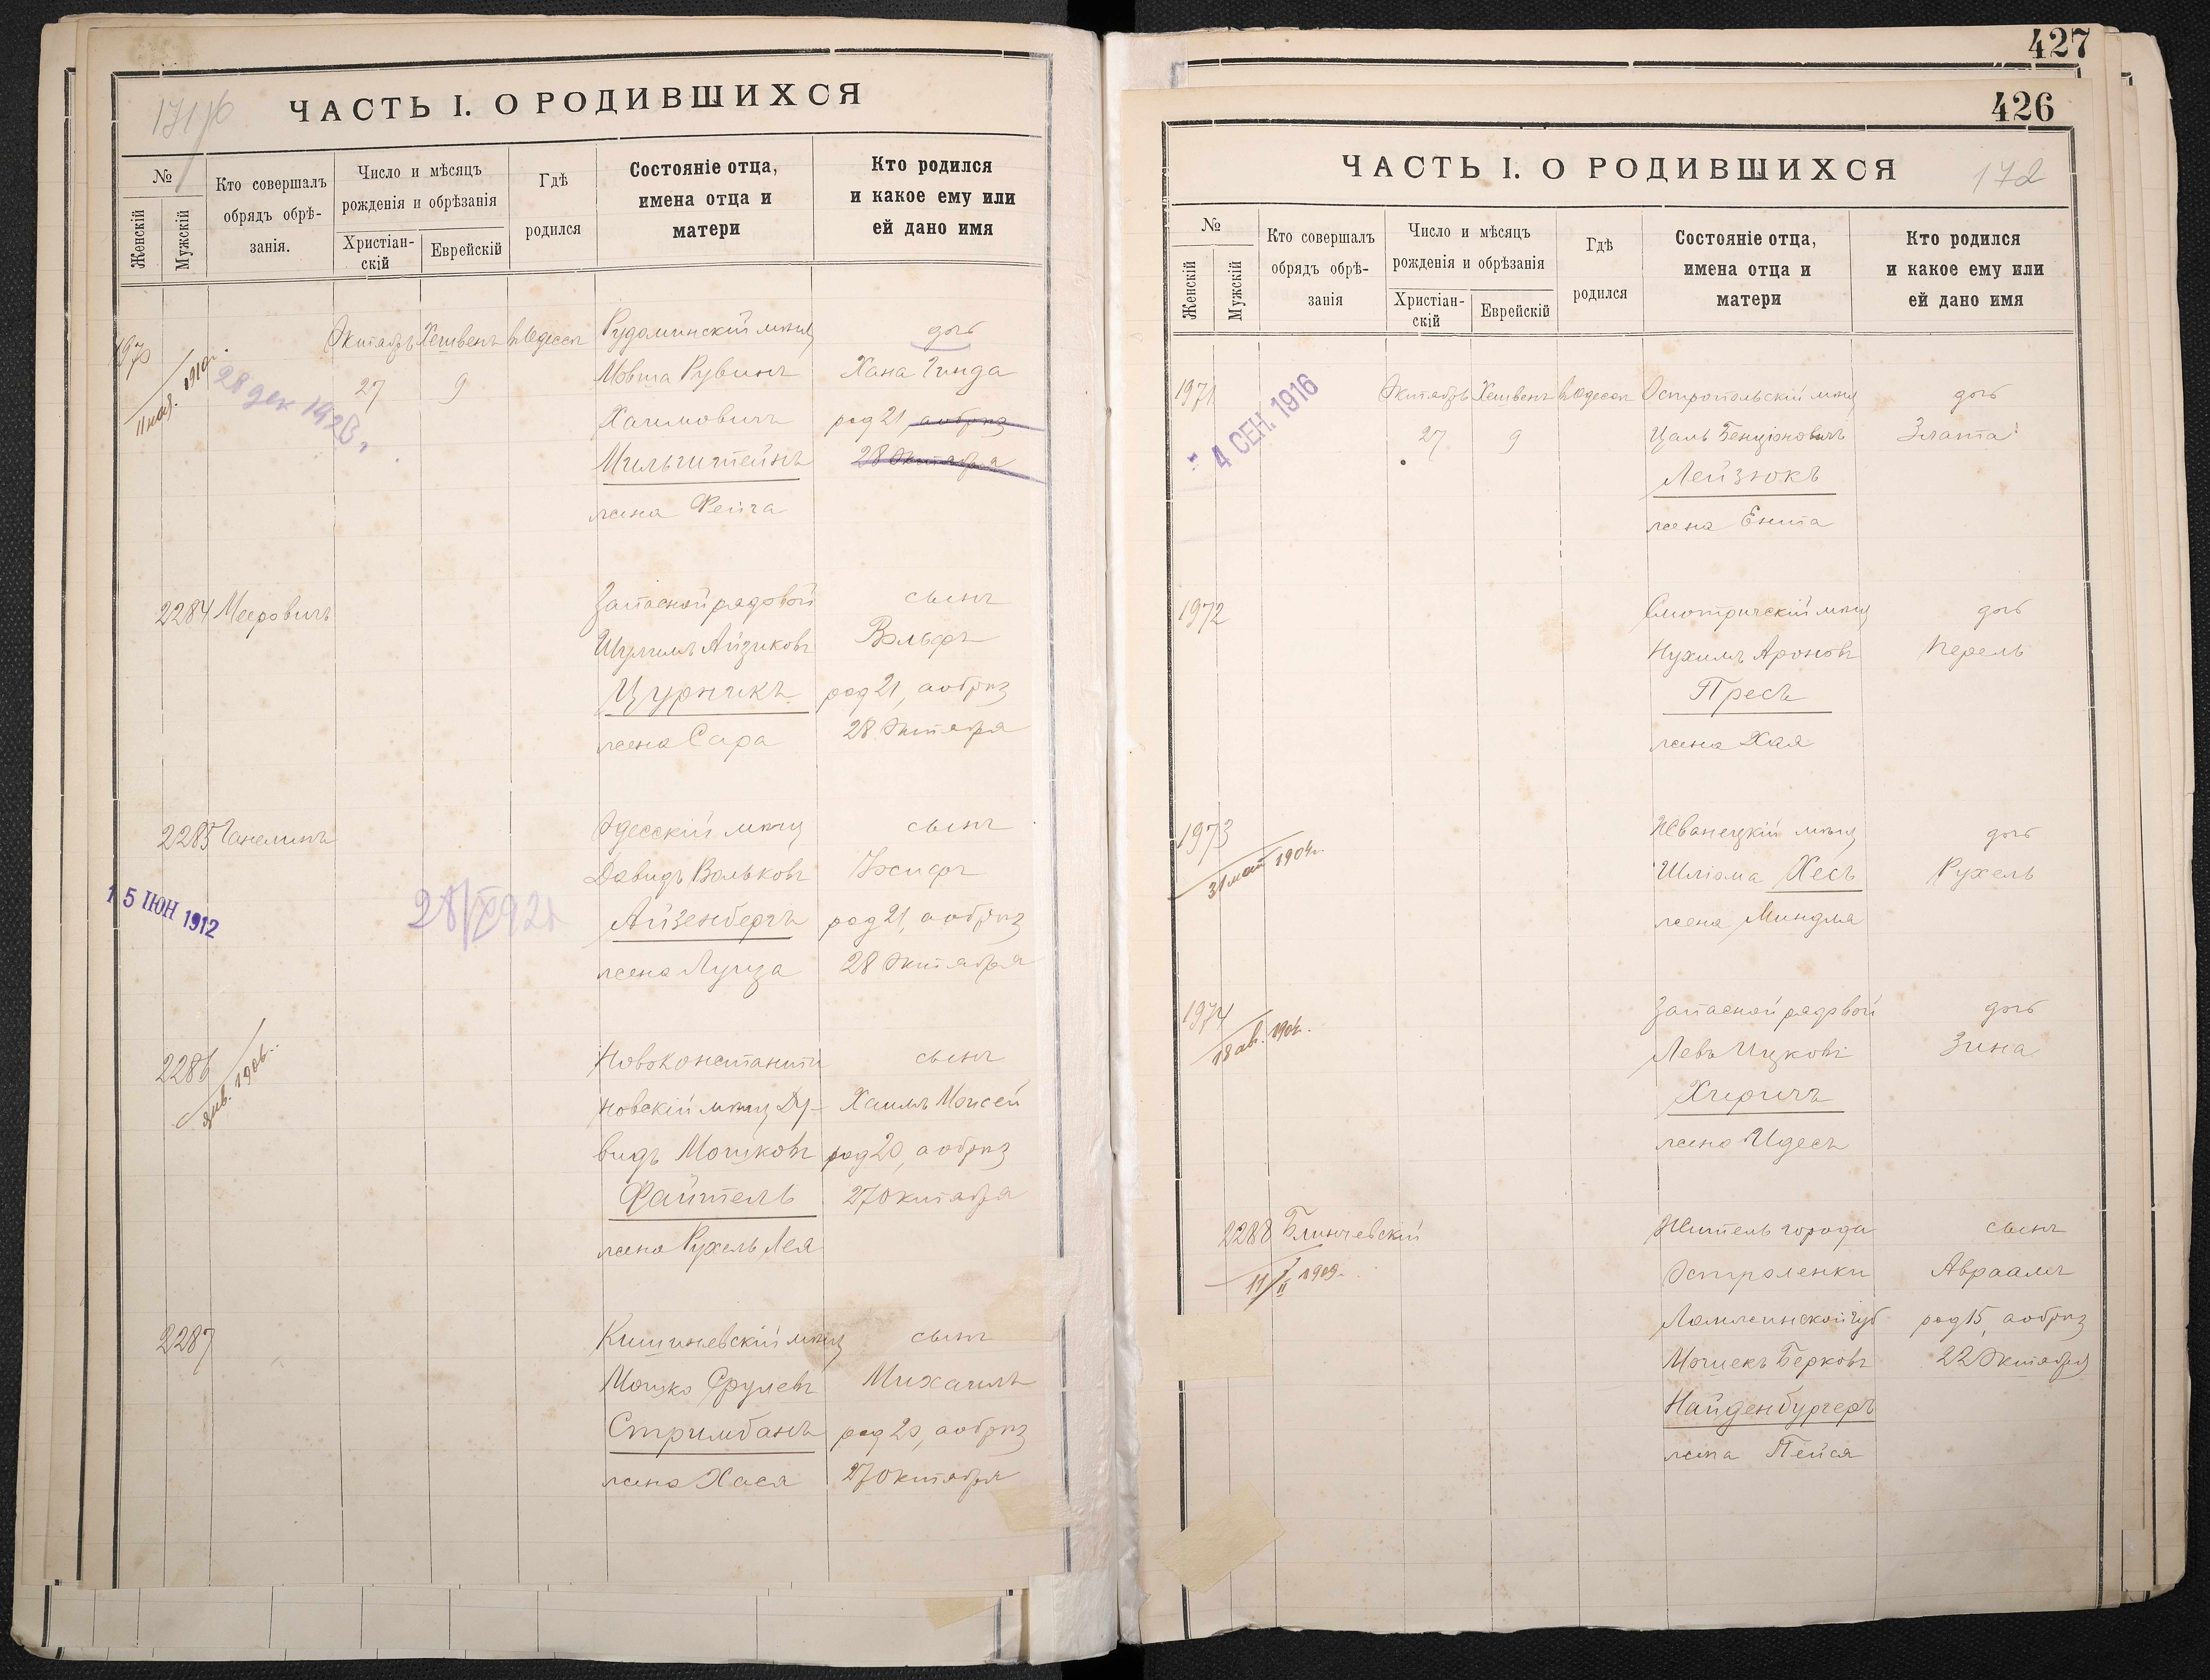 ЧАСТЬ I. О РОДИВШИХСЯ
171
№
Женскій
Мужскій
Кто совершалъ
обрядъ обрѣ-
занія.
Число и мѣсяцъ
рожденія и обрѣзанія
Христіан-
скій
Еврейскій
Гдѣ
родился
Состояніе отца,
имена отца и
матери
Кто родился
и какое ему или
ей дано имя
1970
28 дек
Октябрь Хешвенъ въ Одессѣ
27 9
мѣщ
Мовша Рувинъ
Хаимовичъ
Мильштейнъ
жена Фейга
дочь
Хана Гинда
род 21, а обрѣз
28 Октября
2284 Мееровичъ
Запасной рядовой
Шулимъ Айзиковъ
Цурникъ
жена Сара
сынъ
Вольфъ
род 21, а обрѣз
28 Октября
2285 Ганелинъ
15 ІЮН 1912
Одесскій мѣщ
Давидъ Вольковъ
Айзенбергъ
жена Луиза
сынъ
Іосифъ
род 21, а обрѣз
28 Октября
2286
янв. 1906.
Новоконстанти
новскій мѣщ Ду-
видъ Мошковъ
Файтель
жена Рухель Лея
сынъ
Хаимъ Моисей
род 20, а обрѣз
27 Октября
2287
Кишиневскій мѣщ
Мошко Срулевъ
Стримбанъ
жена Хася
сынъ
Михаилъ
род 20, а обрѣз
27 Октября
427
426
ЧАСТЬ I. О РОДИВШИХСЯ
172
№
Женскій
Мужскій
Кто совершалъ
обрядъ обрѣ-
занія
Число и мѣсяцъ
рожденія и обрѣзанія
Христіан-
скій
Еврейскій
Гдѣ
родился
Состояніе отца,
имена отца и
матери
Кто родился
и какое ему или
ей дано имя
1971
4 СЕН. 1916
Октябрь Хешвенъ въ Одессѣ
27 9
Остропольскій мѣщ
Цаль Бенціоновичъ
Лейзюкъ
жена Ента
дочь
Злата
1972
Смотричскій мѣщ
Нухимъ Ароновъ
Пресъ
жена Хая
дочь
Перель
1973
31 мая 1904г.
Жванецкій мѣщ
Шліома Хесъ
жена Миндля
дочь
Рухель
1974
18 ав. 1904.
Запасной рядовой
Левъ Ицковъ
жена Идесъ
дочь
Зина
2288 Блинчевскій
11/II 1909.
Житель города
Остроленки
Ломжинской губ
Мошекъ Берковъ
Найденбургеръ
жена Пейся
сынъ
Авраамъ
род 15, а обрѣз
22 Октября